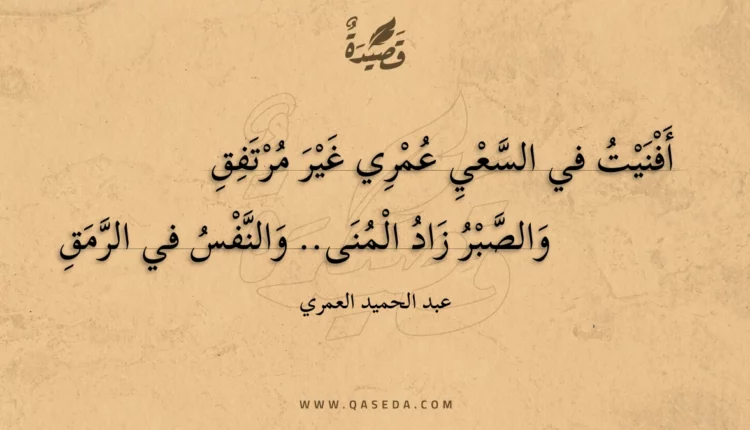 قَصِيدَةٌ
أَفْنَيْتُ في السَّعْيِ عُمْرِي غَيْرَ مُرْتَفِقِ
وَالصَّبْرُ زَادُ الْمُنَى.. وَالنَّفْسُ في الرَّمَقِ
عبد الحميد العمري
WWW.QASEDA.COM